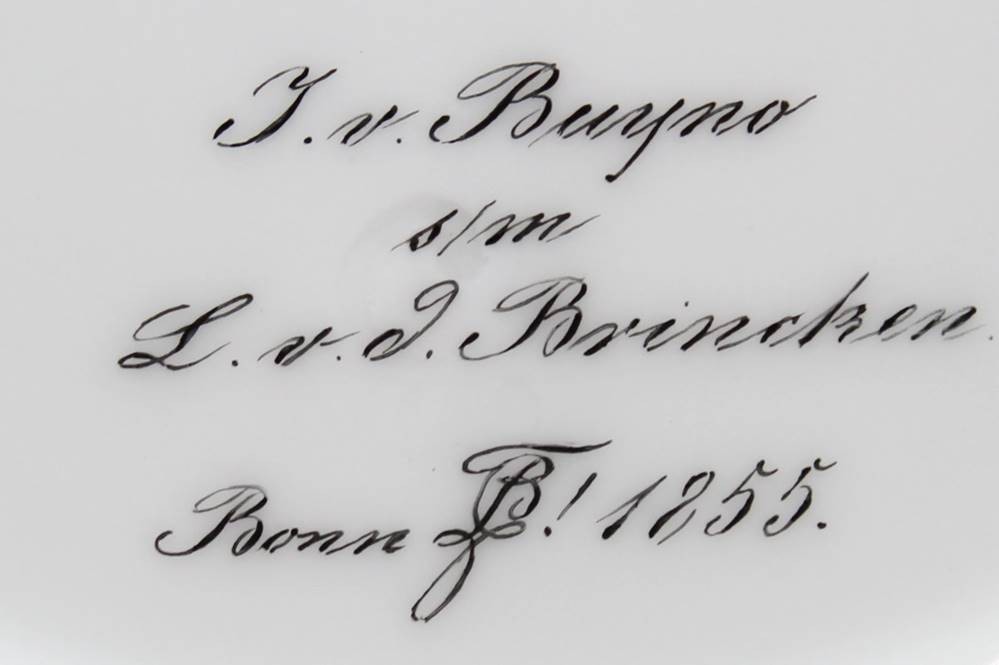 J. v. Buyno
s/m
L. v. d. Brincken.
Bonn ! 1855.